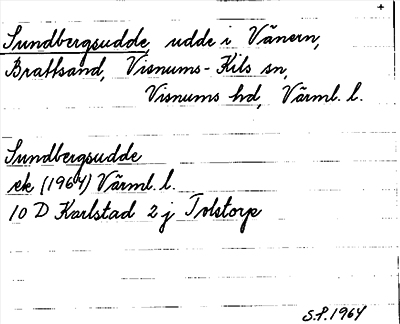 +
Sundbergsudde, udde i Vänern,
Brattsand, Visnums-Kils sn,
Visnums hd, Värml. l.
Sundbergsudde
ek (1967) Värml. l.
10 D Karlstad 2 j Tolstorp
S.P. 1967